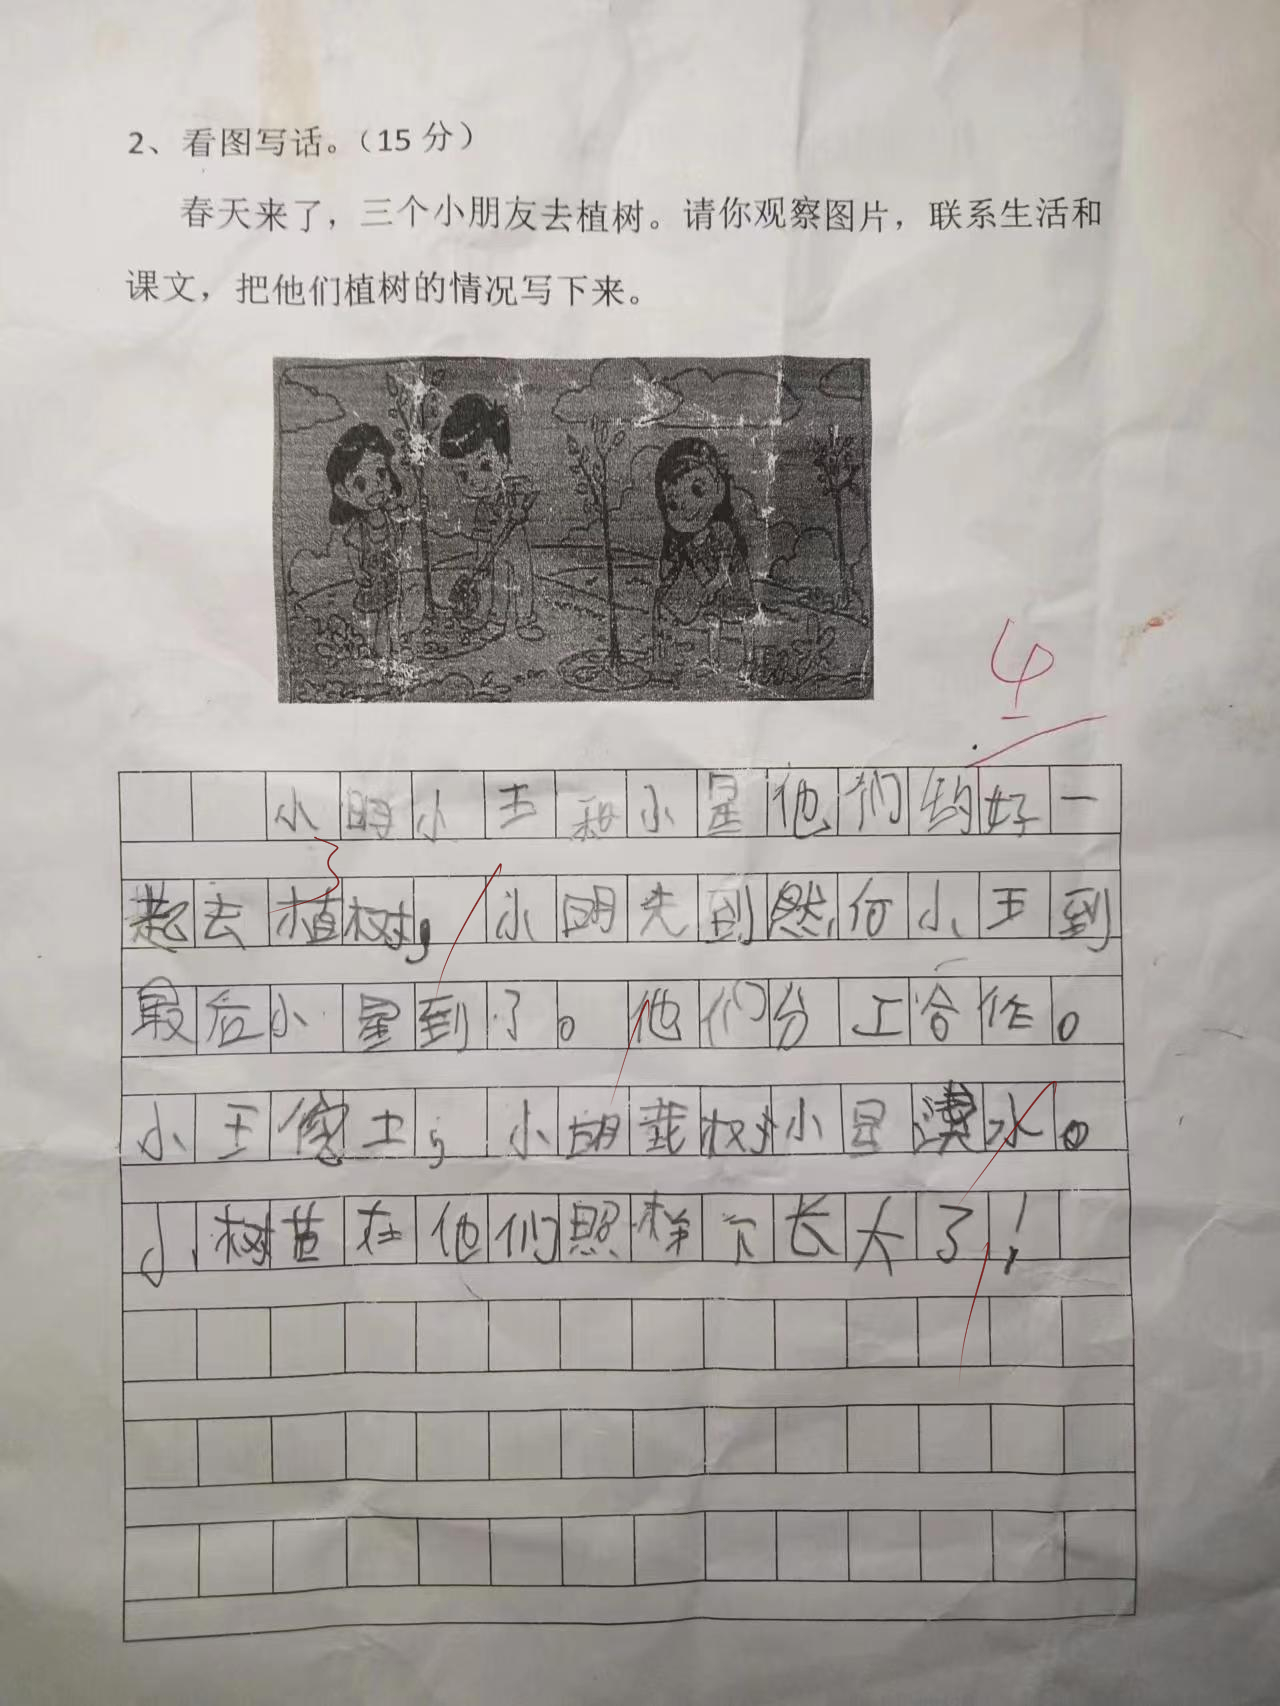 2、看图写话。（15 分）
春天来了，三个小朋友去植树。请你观察图片，联系生活和
课文，把他们植树的情况写下来。
4
小明小王和小星他们约好一
起去植树，小明先到然何小王到
最后小星到了。他们分工合作。
小王土，小明栽树小星水。
小树苗在他们照样下长大了！